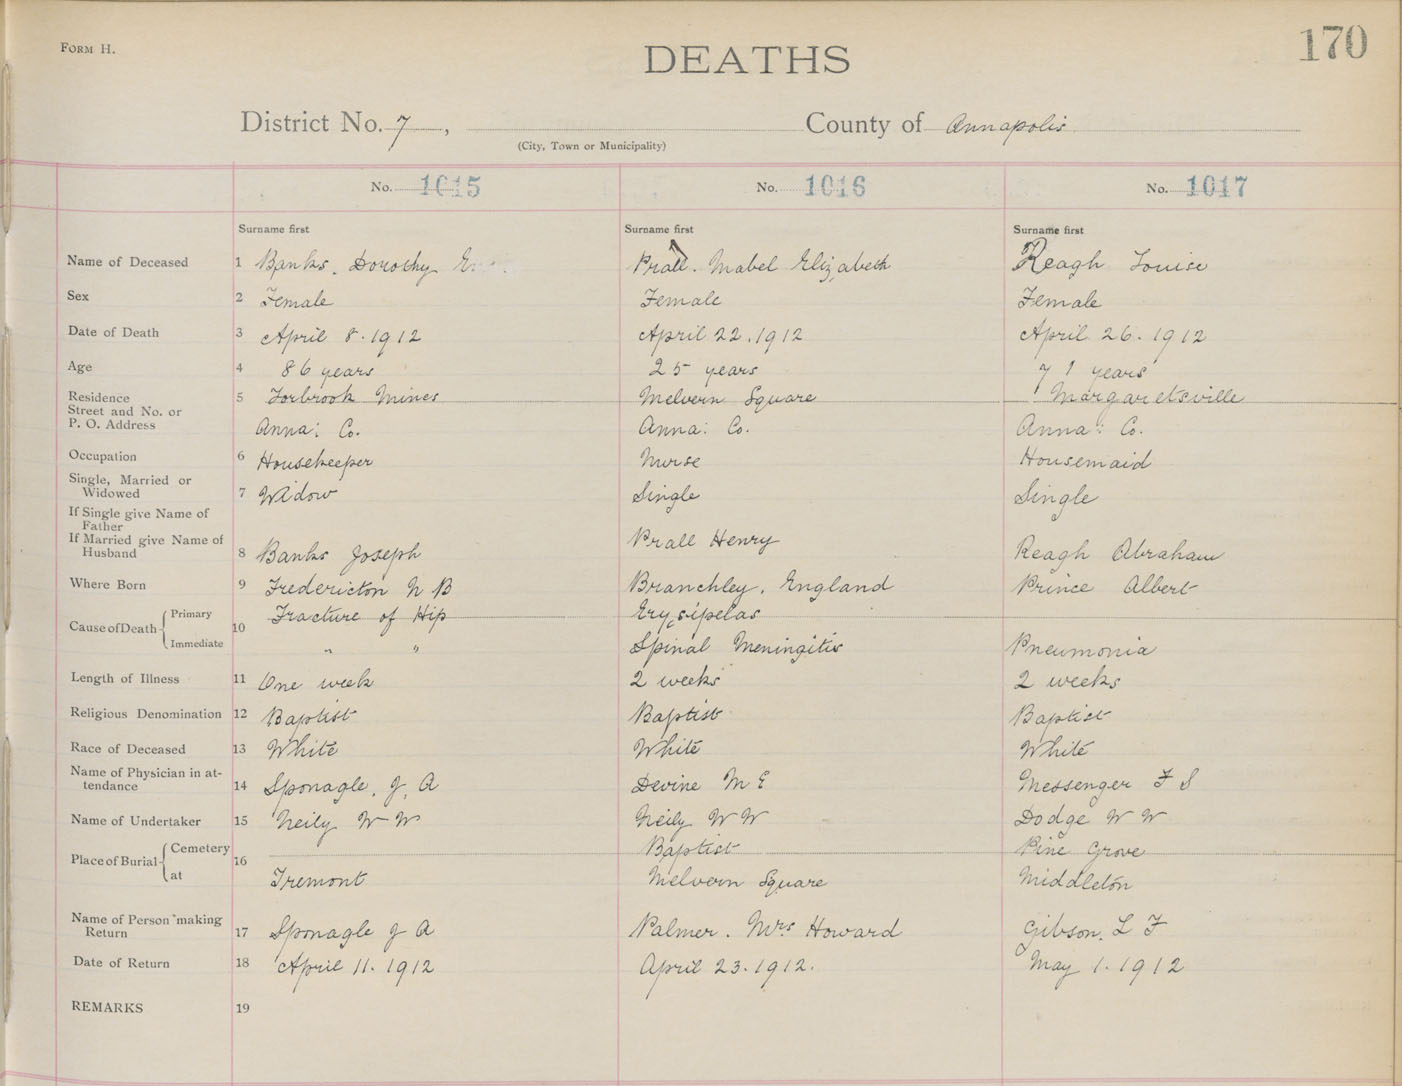 FORM H.
170
DEATHS
District No. 7, County of Annapolis
(City, Town or Municipality)
No. 1015 No. 1016 No. 1017
Surname first Surname first Surname first
Name of Deceased 1 Banks, Dorothy Prall. Mabel Elizabeth Reagh Louise
Sex 2 Female Female Female
Date of Death 3 April 8. 1912 April 22. 1912 April 26. 1912
Age 4 86 years 25 years 71 years
Residence 5 Torbrook Mines Melvern Square Margaretsville
Street and No. or
P. O. Address Anna: Co. Anna: Co. Anna: Co.
Occupation 6 Housekeeper Nurse Housemaid
Single, Married or
Widowed 7 Widow Single Single
If Single give Name of
Father
If Married give Name of Prall Henry
Husband 8 Banks Joseph Reagh Abraham
Where Born 9 Fredericton N B Branchley, England Prince Albert
Cause of Death Primary 10 Fracture of Hip Erysipelas
Immediate " " Spinal Meningitis Pneumonia
Length of Illness 11 One week 2 weeks 2 weeks
Religious Denomination 12 Baptist Baptist Baptist
Race of Deceased 13 White White White
Name of Physician in at-
tendance 14 Sponagle, J, A Devine M E Messenger F S
Name of Undertaker 15 Neily W W Neily W W Dodge W W
Place of Burial Cemetery 16 Baptist Pine Grove
at Tremont Melvern Square Middleton
Name of Person making
Return 17 Sponagle J A Palmer. Mrs Howard Gibson, L F
Date of Return 18 April 11. 1912 April 23. 1912. May 1. 1912
REMARKS 19